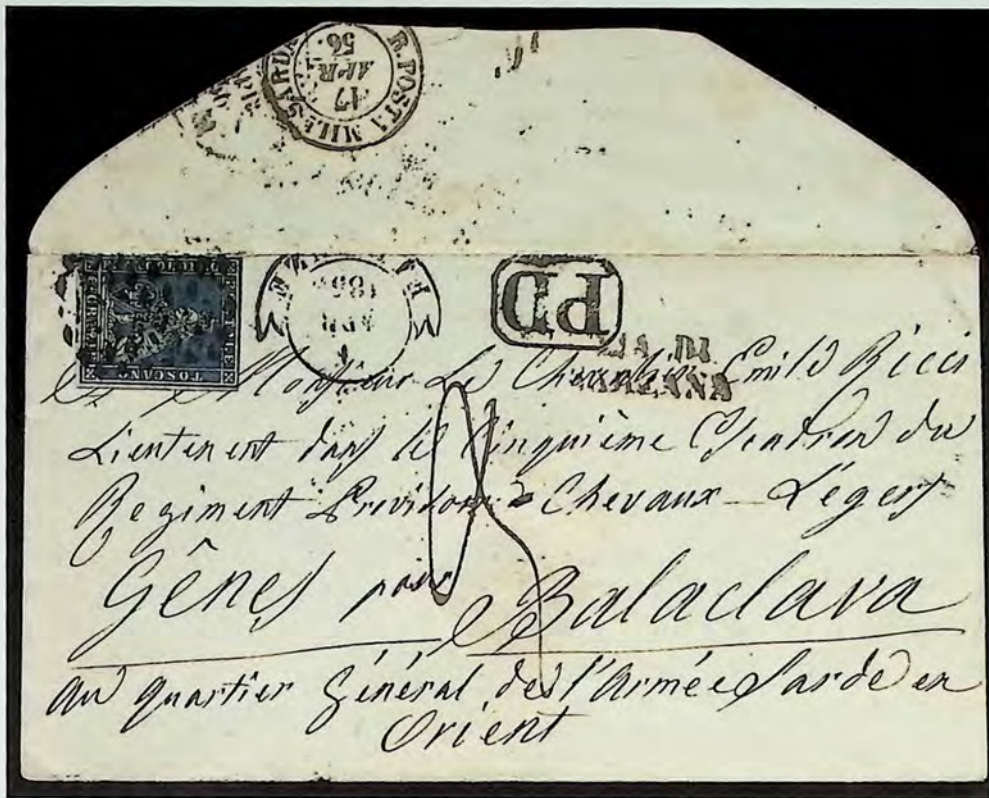 R. POSTA MILE SARDA
17
APR
56
TOSCANO
1
APR
185
PD
VIA DI
SARZANA
Monsieur Le Chevalier Emile Ricci
Lieutenent dans le Cinquième Escadron du
Regiment Provisoire Chevaux-Légers
Gênes pour Balaclava
au quartier Général de l'Armée Sarde en
Orient